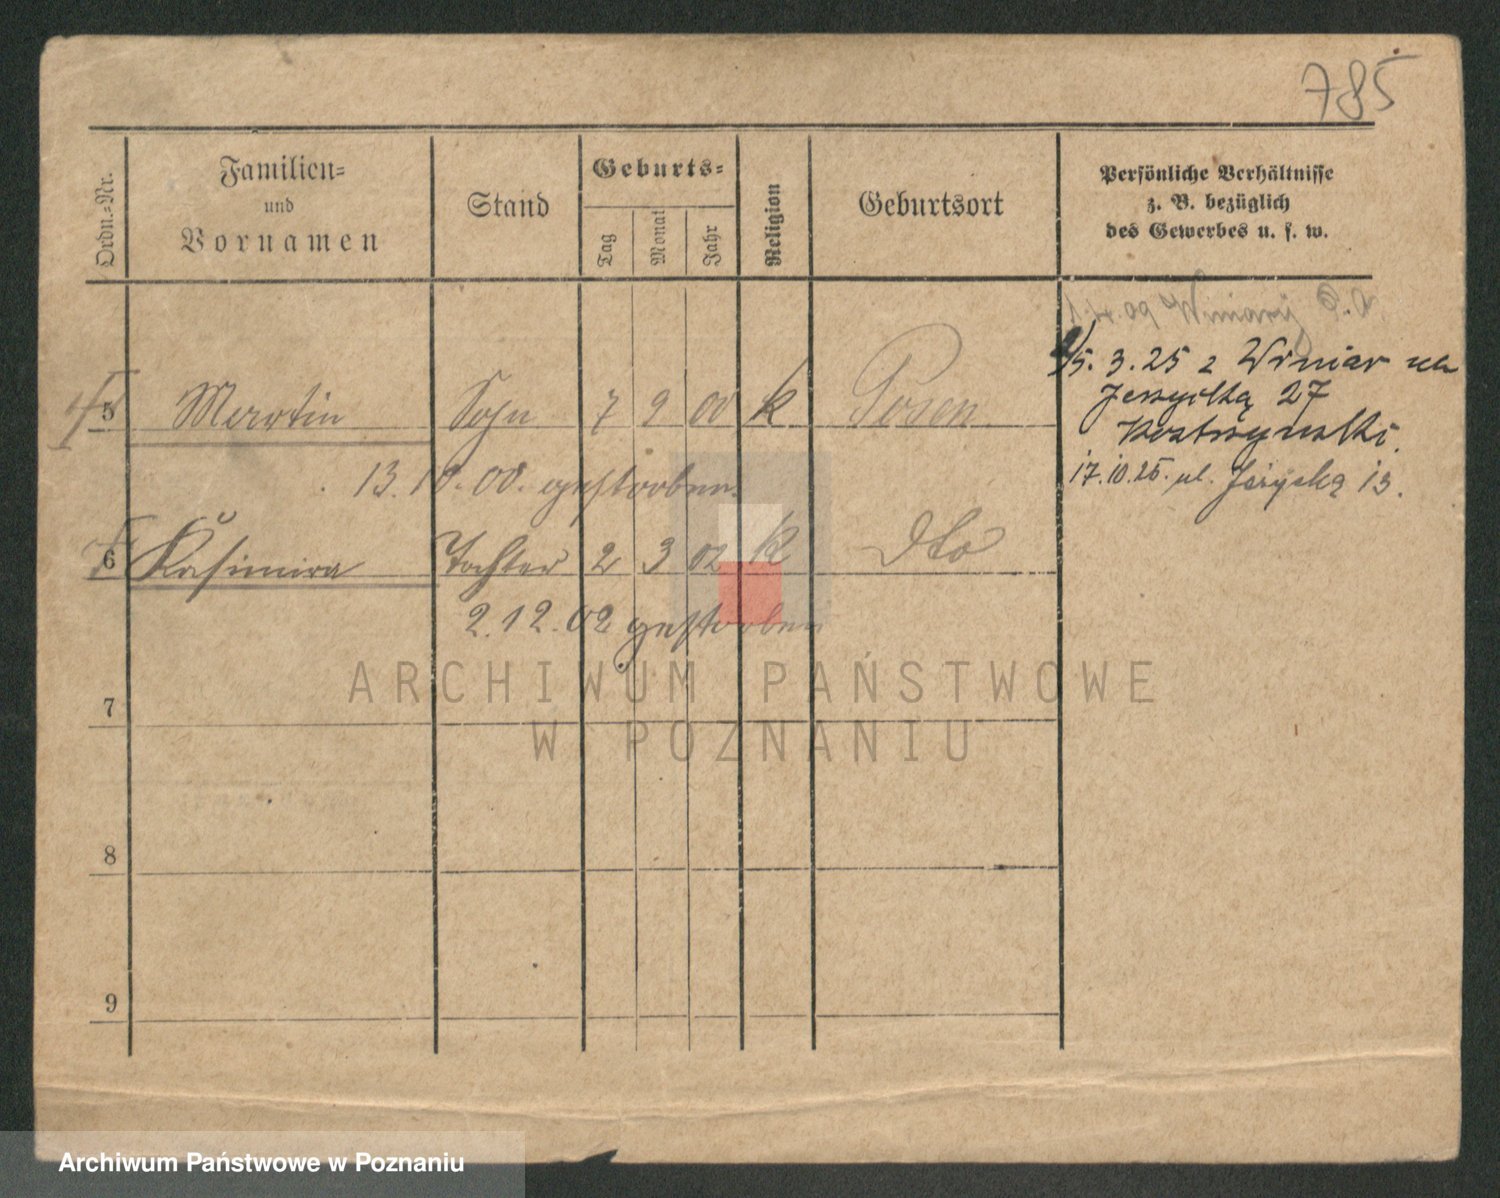 785
Ordn.-Nr.
Familien-
und
Vornamen
Stand
Geburts-
Tag
Monat
Jahr
Religion
Geburtsort
Persönliche Verhältnisse
z. B. bezüglich
des Gewerbes u. s. w.
1.4.09 Winiary
5 Martin Sohn 7 9 00 k Posen
13.10.00. gestorben.
6 Kasimira Tochter 2 3 02 k dto
2.12.02 gestorben
5.3.25 z Winiar
27
17.10.25. ul. 13.
7
8
9
ARCHIWUM PAŃSTWOWE
W POZNANIU
Archiwum Państwowe w Poznaniu